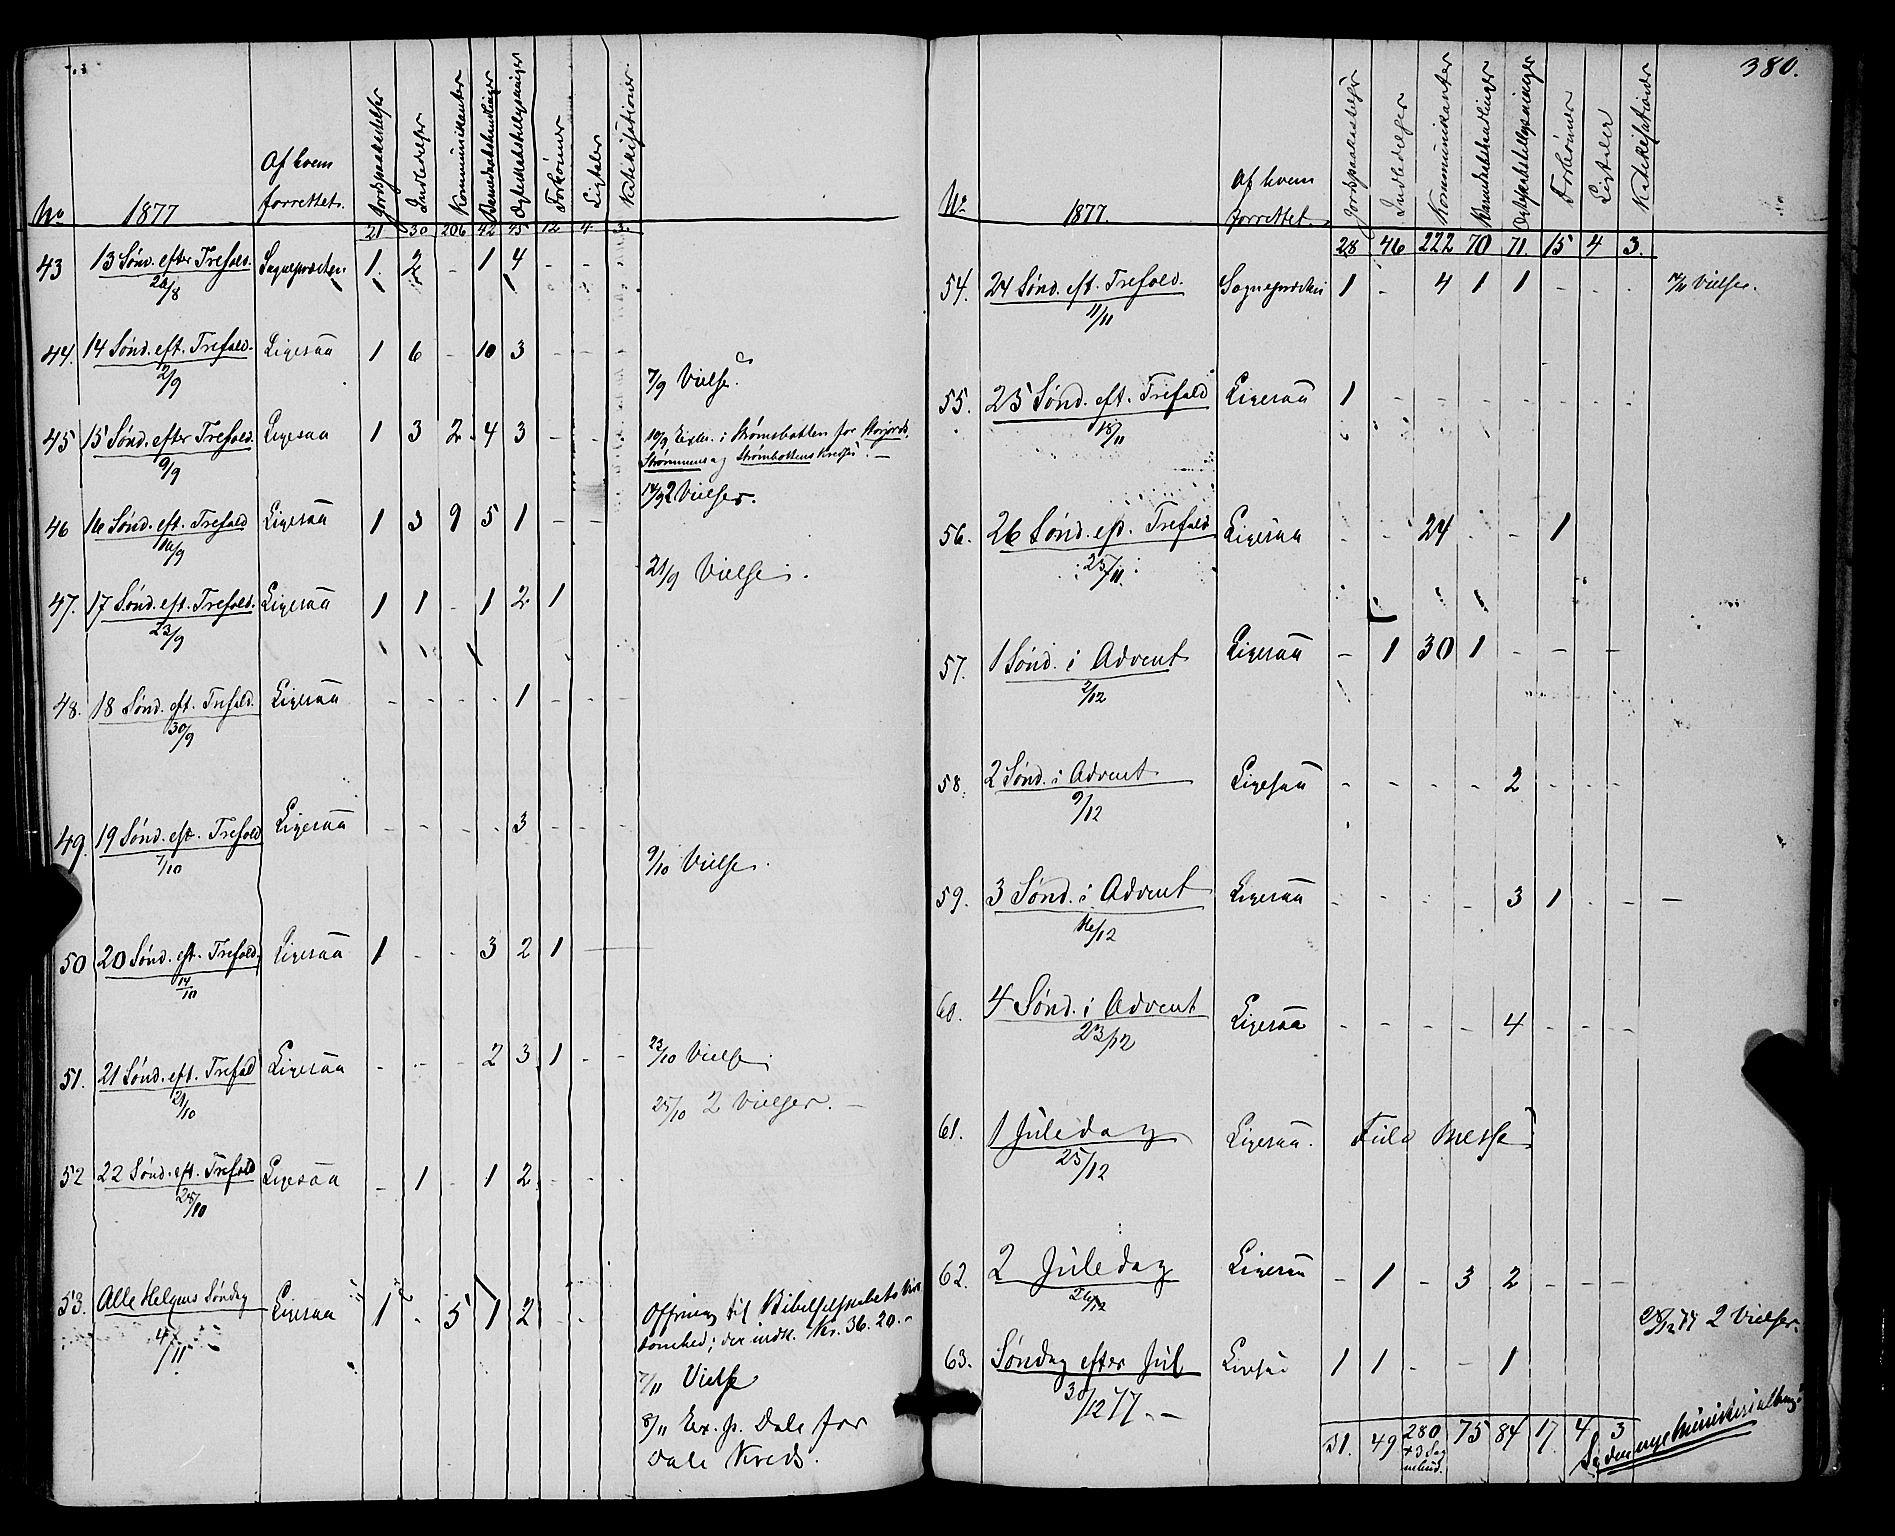 No 1877 Af hvem forrettet. Jordspaakastelser Indledelser Kommunikanter Barnedaabshandlinger Ægteskabstillysninger Forloninger Ligtaler Katekisationer.
21 30 206 42 45 12 4 3.
43 13 Sønd. efter Trefold. Sognepræsten 1. 2 - 1 4 - -
26/8
44. 14 Sønd. eft. Trefold. Ligesaa 1 6 - 10 3 - - -
2/9
7/9 Vielse.
45 15 Sønd. efter Trefold. Ligesaa 1 3 2 4 3 - -
9/9
10/9 i Strømsbotten for
Strømmens og Strømbottens Kredse. -
14/9 2 Vielser.
46 16 Sønd. eft. Trefold Ligesaa 1 3 9 5 1 - -
16/9
21/9 Vielse.
47. 17 Sønd. eft. Trefold. Ligesaa 1 1 - 1 2 1
23/9
48. 18 Sønd. eft. Trefold. Ligesaa - - - - 1 - - -
30/9
49. 19 Sønd. eft. Trefold Ligesaa - - - - 3 - - -
7/10
9/10 Vielse.
50 20 Sønd. eft. Trefold. Ligesaa 1 - - 3 2 1
14/10
51. 21 Sønd. eft. Trefold Ligesaa - - - 2 3 1 - -
21/10
23/10 Vielse
25/10 2 Vielser. -
52 22 Sønd. eft. Trefold Ligesaa - 1 - 1 2 - - -
28/10
53. Alle Helgens Søndag Ligesaa 1 - 5 1 2 - -
4/11
Offring til Bibelselskabets Virk
somhed; der indk. Kr. 36. 20. -
7/11 Vielse
8/11 Ex. p. Dale for
Dale Kreds.
380.
No 1877. Af hvem forrettet. Jordspaakastelser Indledelser Kommunikanter Barnedaabshandlinger Ægteskabstillysninger Forloninger Ligtaler Katekisationer
28 46 222 70 71. 15 4 3.
54. 24 Sønd. eft. Trefold. Sognepræsten 1 - 4 1 1 - - - Vielse.
11/11
55. 25 Sønd. eft. Trefold Ligesaa 1 - - - - - - -
18/11
56. 26 Sønd. eft. Trefold Ligesaa - - 24 - - 1
25/11
57. 1 Sønd. i Advent Ligesaa - 1 30 1 - - -
2/12
58. 2 Sønd. i Advent Ligesaa - - - - 2 - - -
9/12
59. 3 Sønd. i Advent Ligesaa - - - - 3 1 - - -
16/12
60. 4 Sønd. i Advent Ligesaa - - - - 4 - - -
23/12
61. 1 Juledag Ligesaa. Fuld Messe
25/12
62. 2 Juledag Ligesaa - 1 - 3 2 - - -
26/12
28/12 77 2 Vielser.
63. Søndag efter Jul 1 1 - - 1
30/12 77. -
31. 49 280 75 84 17. 4 3
Se den nye Ministerialbog